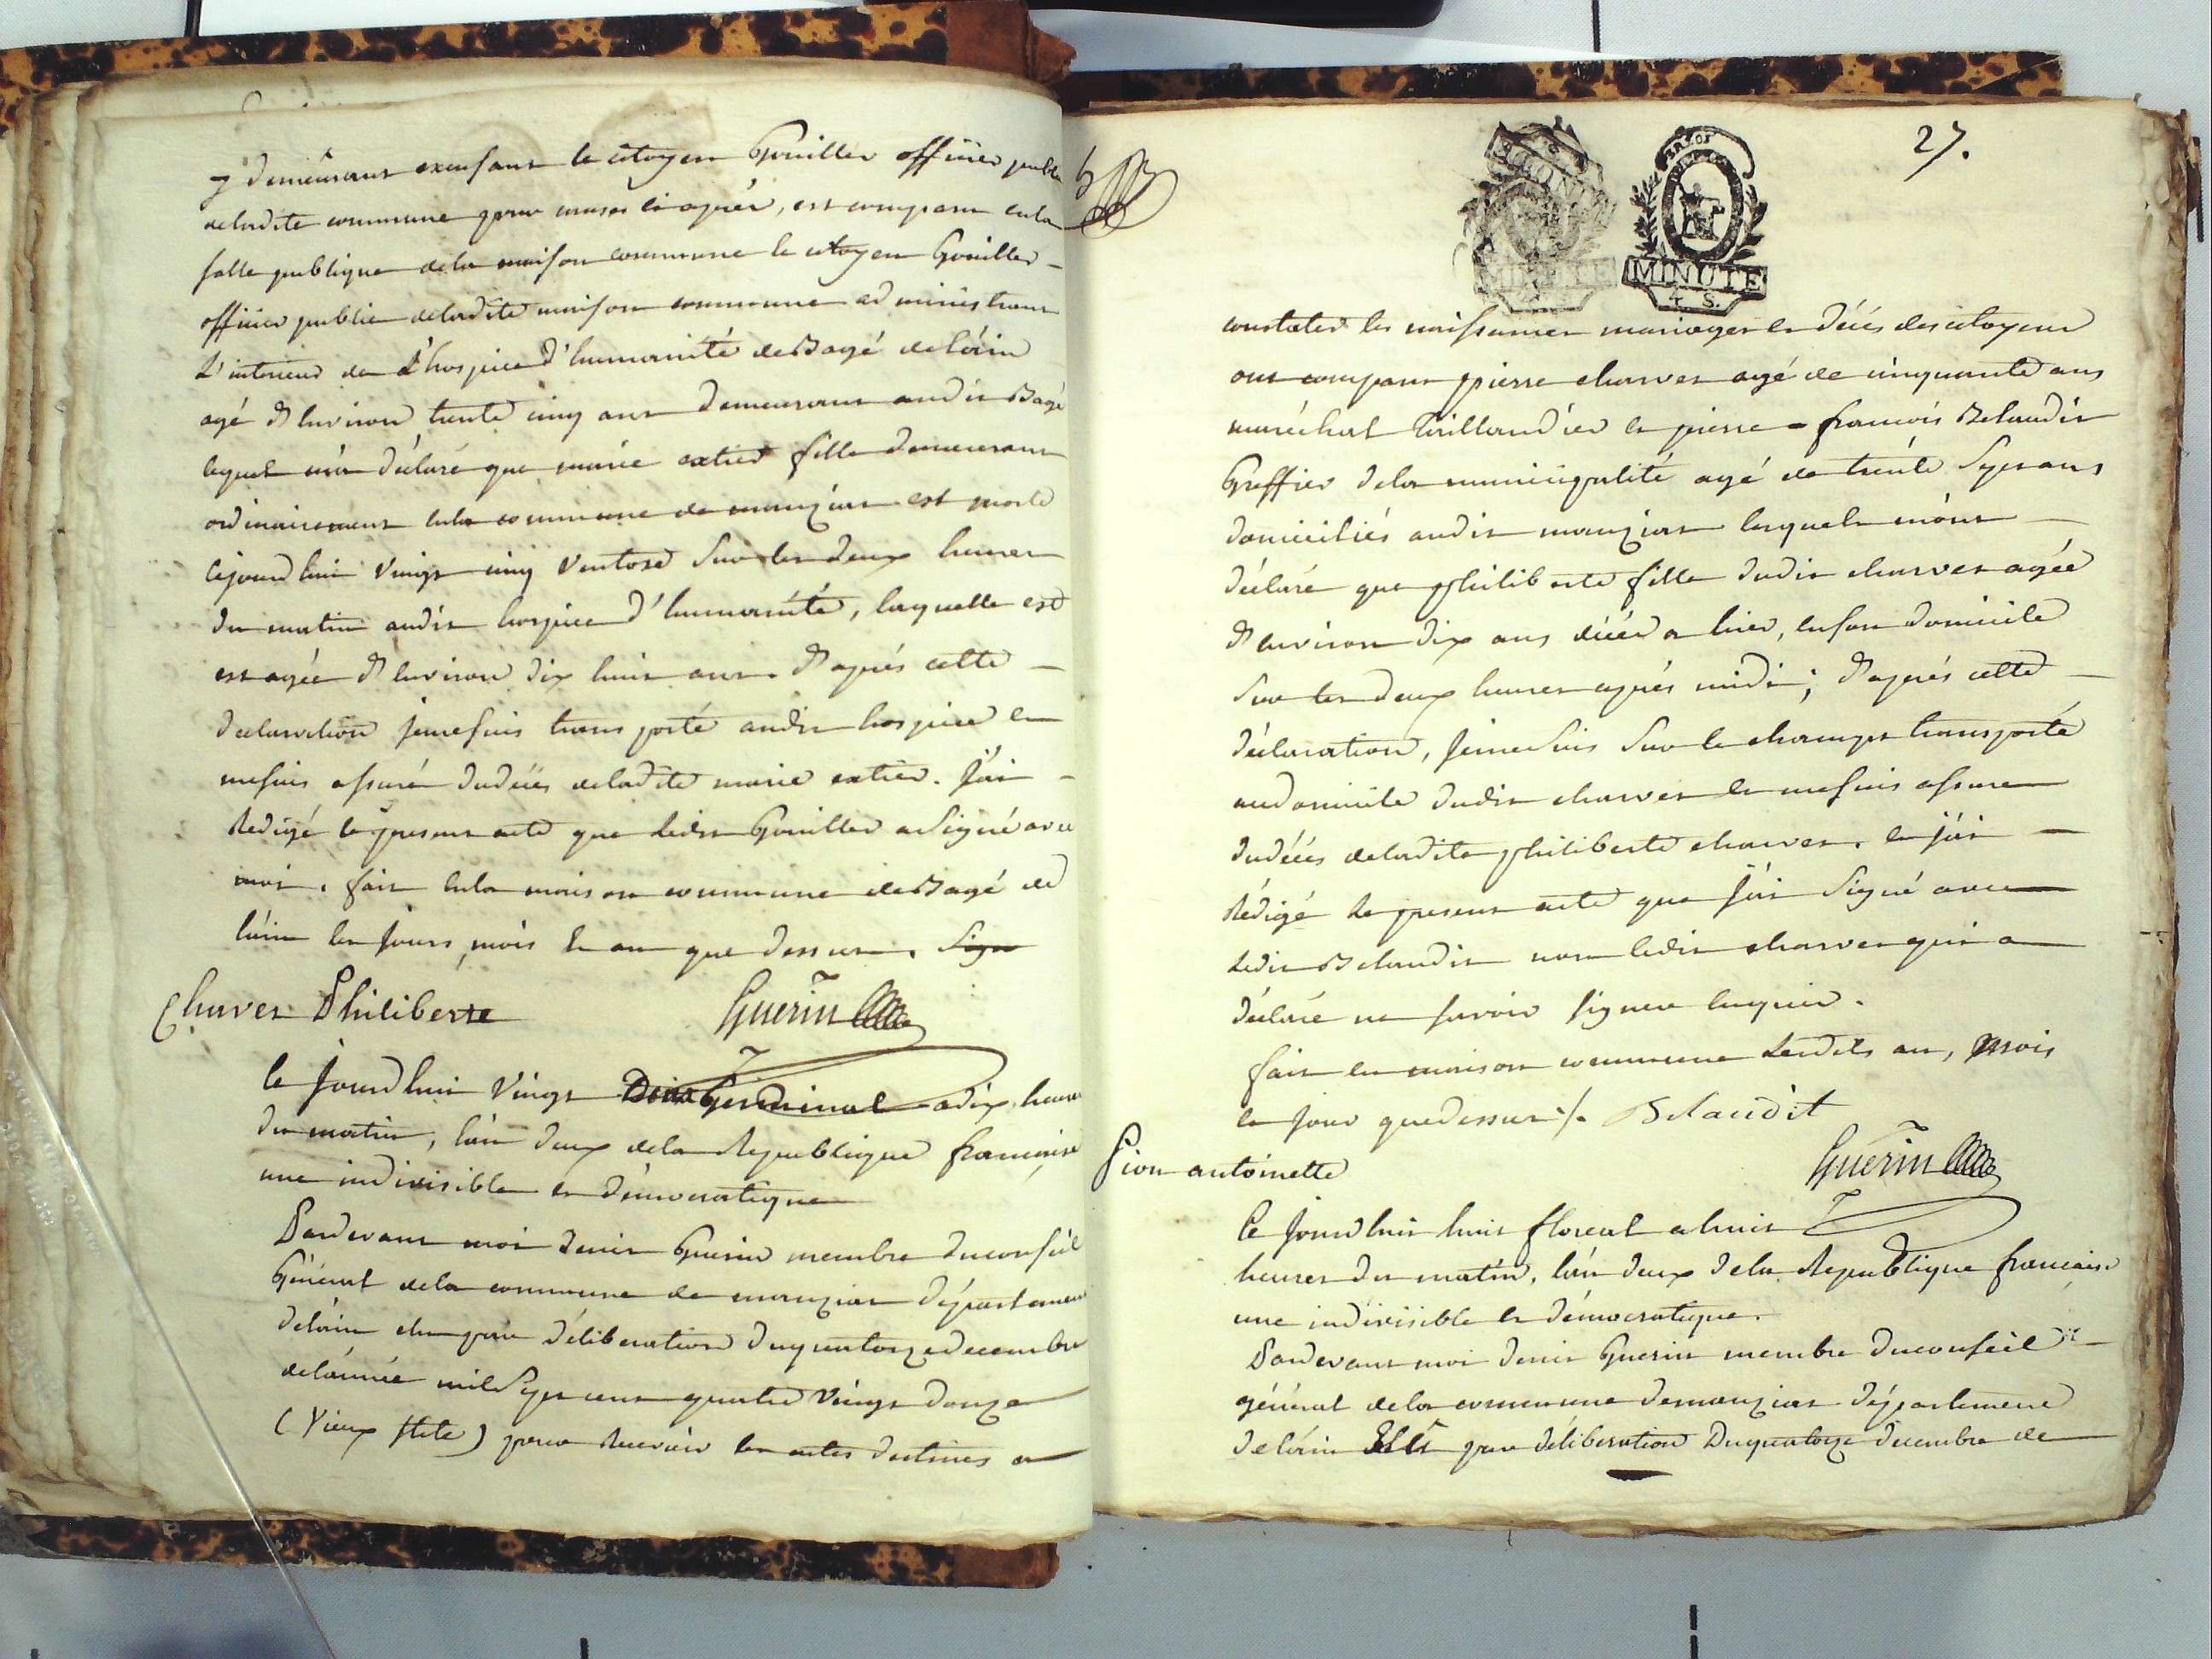 y demeurant excusant le citoyen Gouiller officier public
deladite commune pour causes ci après, est comparu enla
salle publique dela maison commune le citoyen Gouiller
officier public deladite maison commune administrant
L'interieur de L'hospice d'humanité de Bagé delàin
agé d'Environ trente cinq ans demeurant audit Bagé
lequel m'a déclaré que marie extier fille demeurant
ordinairement enla commune de manziat est morte
cejourdhui vingt cinq ventose sur les deux heures
du matin audit hospice d'humanité, laquelle est
est agée d'Environ dix huit ans. D'après cette
declaration jemesuis transporté audit hospice et
mesuis assuré dudécès deladite marie extier. j'ai
Redigé le present acte que Ledit Gouiller a Signé avec
moi. fait enla maison commune de Bagé de
làin les jours, mois et an que dessus. Signe
Guerin
Charvet Philiberte
Ce jourdhui vingt Deux Germinal a dix heures
du matin, l'an deux dela Republique francaise
une indivisible et démocratique
Pardevant moi denis Guerin membre duconseil
Général dela commune de manziat département
delàin elu par déliberation duquatorze decembre
delànnée mil Sept cent quatre vingt douze
(Vieux stile) pour Recevoir les actes destinés a
27.
MINUTE
4 S.
constater les naissances mariages et décès des citoyens
ont comparu pierre charvet agé de cinquante ans
maréchal taillandier et pierre françois Belaudit
Greffier dela municipalité agé de trente Sept ans
domiciliés audit manziat lesquels m'ont
déclaré que philiberte fille dudit charvet agée
d'environ dix ans décéda hier, enson domicile
Sur les deux heures après midi; d'après cette
déclaration, Jemesuis Sur le champs transporté
audomicile dudit charvet et mesuis assuré
dudécès deladite philiberte charvet. et j'ai
Rédigé Le present acte que J'ai Signé avec
Ledit Belaudit non ledit charvet qui a
déclaré ne savoir signer Enquis.
fait en maison commune Lesdits an, mois
et jour quedessus /. Belaudit
Guerin
Pion antoinette
Ce jourdhui huit floreal a huit
heures du matin, l'an deux dela Republique francaise
une indivisible et démocratique.
Pardevant moi denis Guerin membre duconseil
général dela commune demanziat département
delàin Elu par déliberation Duquatorze decembre de